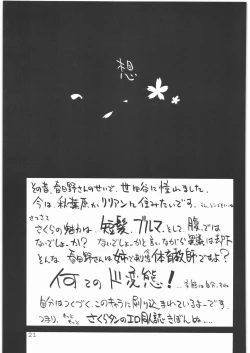 想
その昔、春日野さんのせいで、世田谷に憧れました。
今は、秋葉原かリリアンに住みたいです。
さてさて
さくらの魅力は、短髪、ブルマ、そして、腹では
ないでしょーか? ないでしょーかと言いながら異議は却下
そんな、春日野さんは姉で剣道体育教師ですよ?
何てのド変態!
自分はつくづく、このキャラに刷り込まれているよーです。
つまり、もっともっとさくらタンのエロ同人誌きぼんぬ…
21